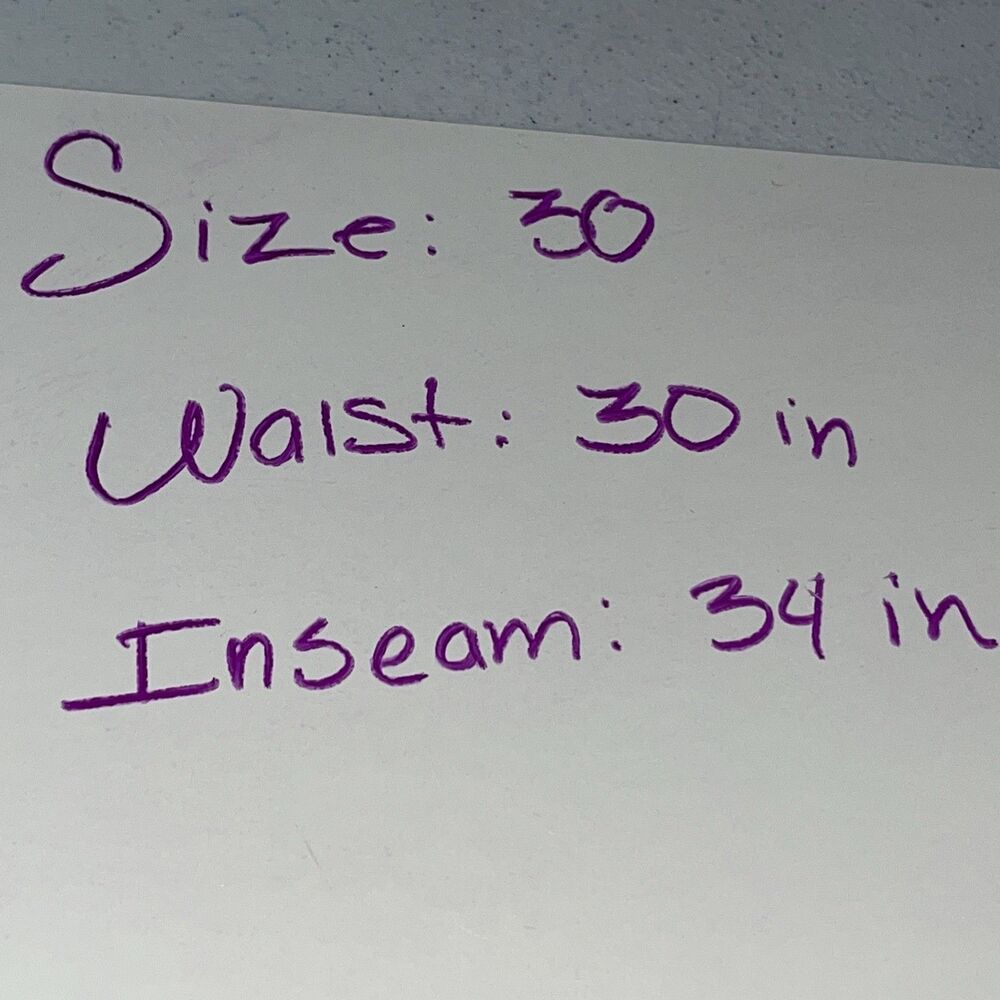 Size: 30
Waist: 30 in
Inseam: 34 in